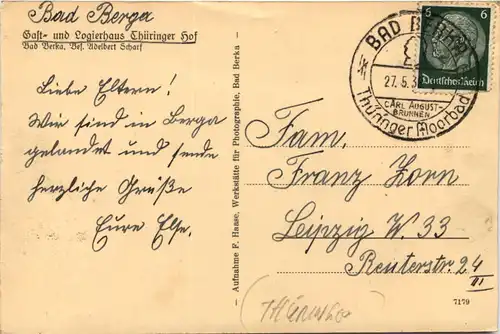 Bad Berga
Gast- und Logierhaus Thüringer Hof
Bad Berka, Bes. Adelbert Scharf
Liebe Eltern!
Wir sind in Berga
gelandet und sende
herzliche Grüße
Eure Else.
— Aufnahme F. Haase, Werkstätte für Photographie, Bad Berka —
BAD BERKA
27.5.3
CARL AUGUST-
BRUNNEN
Thüringer Moorbad
6 6
Deutsches Reich
Fam.
Franz Zorn
Leipzig W. 33
Reuterstr. 24
III
7179